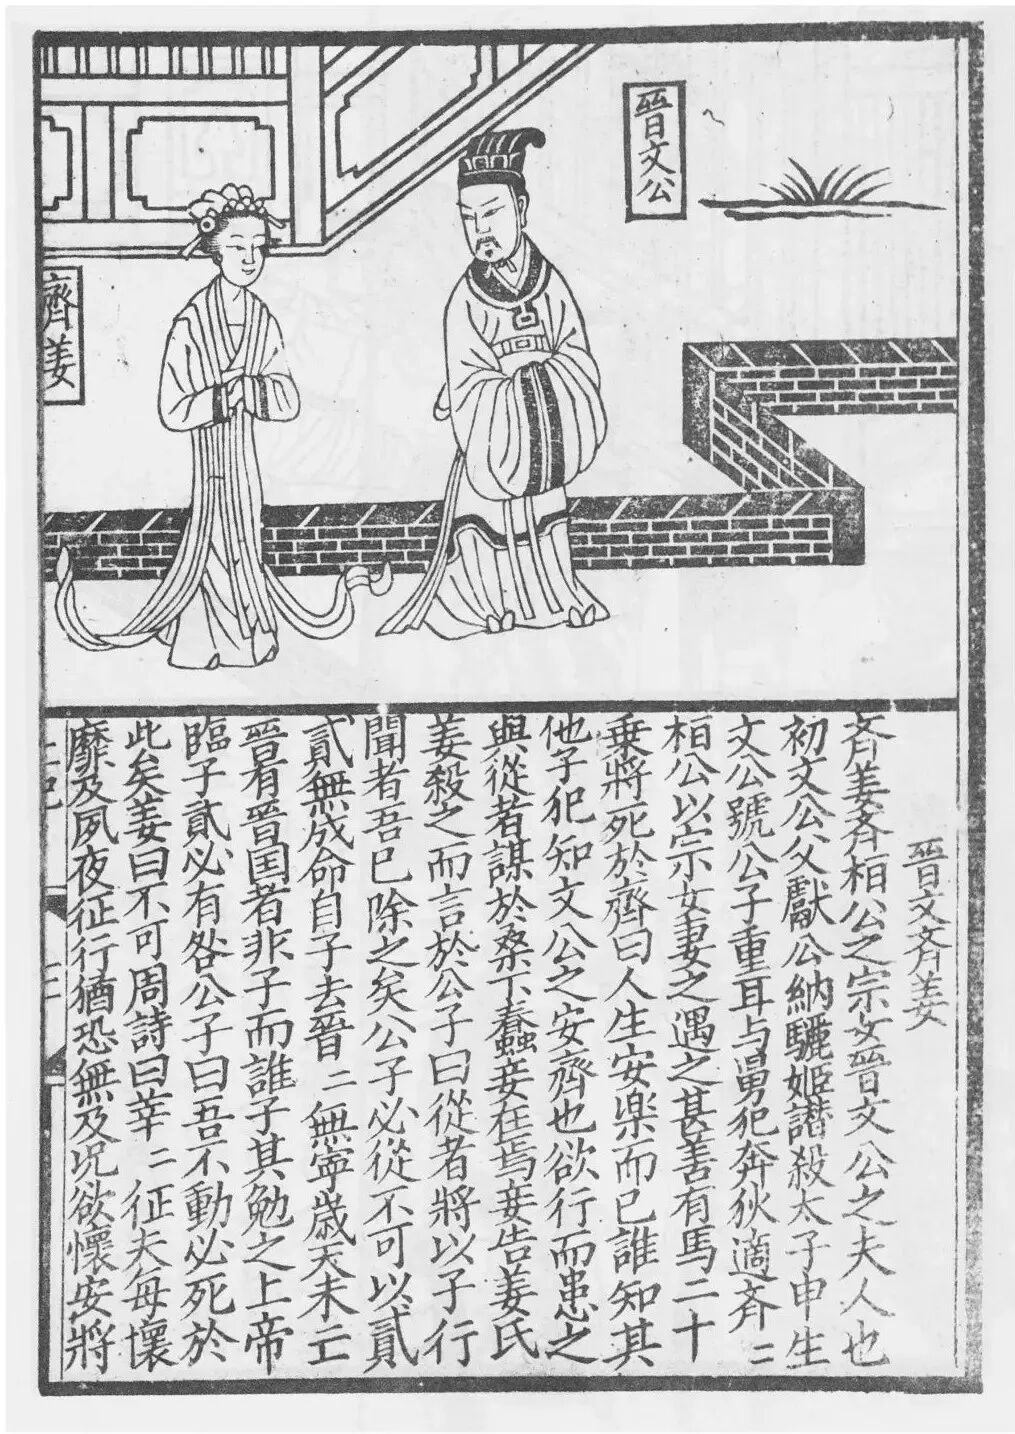 晉文公
齊姜
晉文齐姜
齐姜齐桓公之宗女晉文公之夫人也
初文公父獻公納驪姬譖殺太子申生
文公號公子重耳与舅犯奔狄適齐二
桓公以宗女妻之遇之甚善有馬二十
乗將死於齊曰人生安楽而已誰知其
他子犯知文公之安齊也欲行而患之
與從者謀於桑下蠶妾在焉妾告姜氏
姜殺之而言於公子曰從者將以子行
聞者吾已除之矣公子必從不可以貳
貳無成命自子去晉二無寧歲天未亡
晉有晉囯者非子而誰子其勉之上帝
臨子貳必有咎公子曰吾不動必死於
此矣姜曰不可周詩曰莘二征夫每懷
靡及夙夜征行猶恐無及况欲懷安將